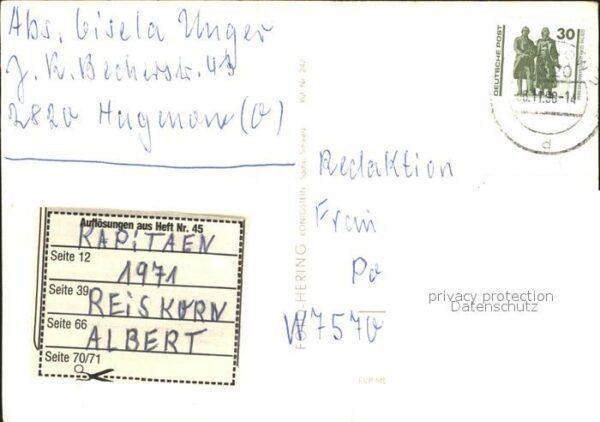 Abs. Gisela Unger
J. R. Becherstr. 43
2820 Hagenow (O)
DEUTSCHE POST
30
11.90-14
d
Redaktion
Frau
Po
W7570
privacy protection
Datenschutz
Auflösungen aus Heft Nr. 45
KAPITAEN
Seite 12
1971
Seite 39
REISKORN
Seite 66
ALBERT
Seite 70/71
HERING KÖNIGSTEIN